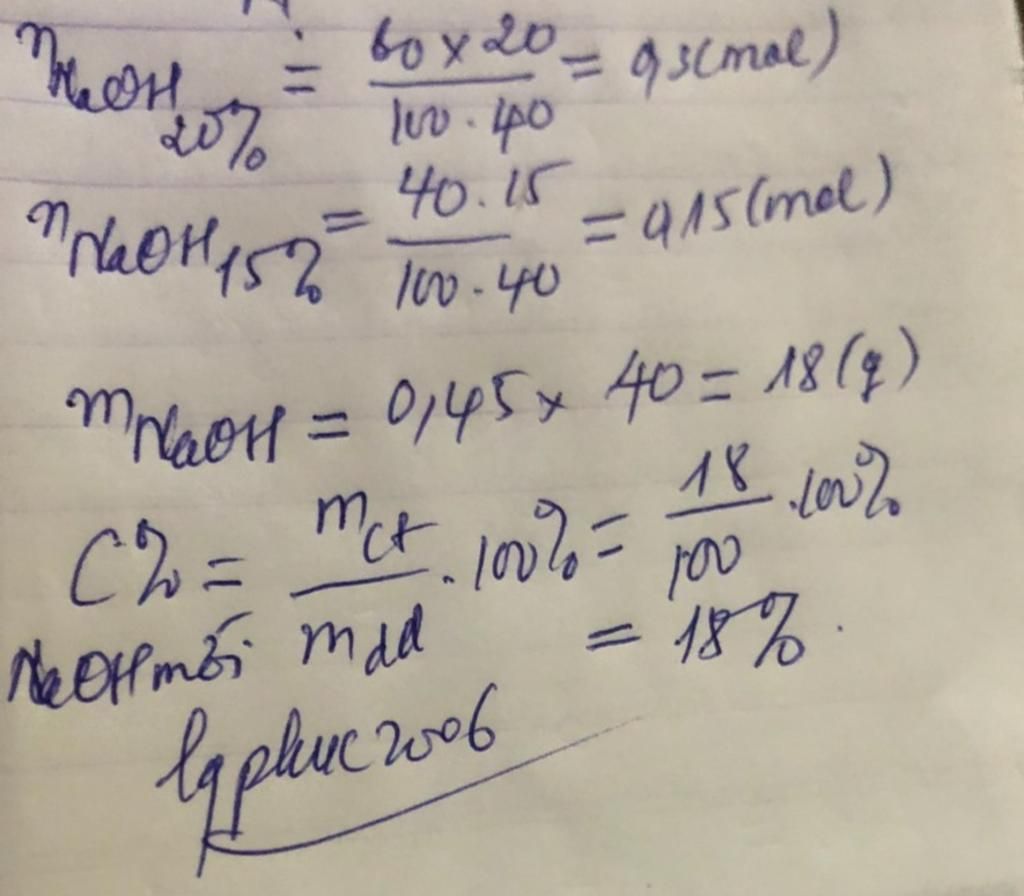 nNaOH 20% = 60 x 20 / 100 . 40 = 0,3(mol)
nNaOH 15% = 40 . 15 / 100 . 40 = 0,15(mol)
mNaOH = 0,45 x 40 = 18(g)
C% NaOH mới = mct / mdd . 100% = 18 / 100 . 100%
= 18%.
lgphuc2006